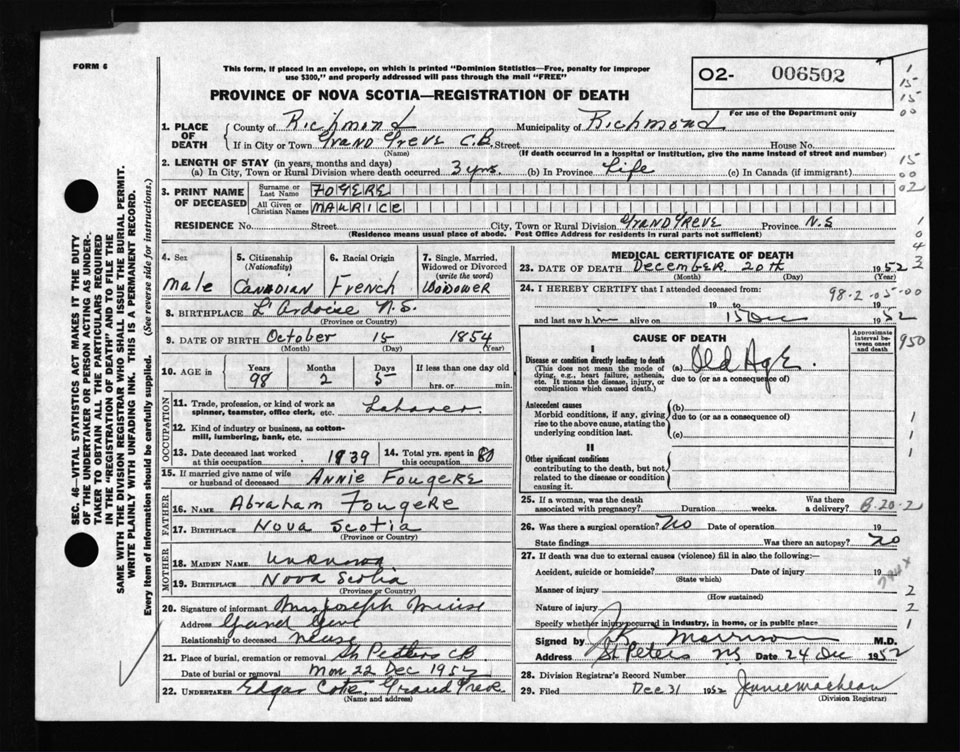 FORM 6
This form, if placed in an envelope, on which is printed "Dominion Statistics—Free, penalty for improper
use $300," and properly addressed will pass through the mail "FREE"
O2- 006502
For use of the Department only
PROVINCE OF NOVA SCOTIA—REGISTRATION OF DEATH
1. PLACE OF DEATH { County of Richmond Municipality of Richmond
If in City or Town Grand Greve C.B. Street House No.
(Name) (If death occurred in a hospital or institution, give the name instead of street and number)
2. LENGTH OF STAY (in years, months and days)
(a) In City, Town or Rural Division where death occurred 3 yrs. (b) In Province Life (c) In Canada (if immigrant)
3. PRINT NAME OF DECEASED { Surname or Last Name FOGERE
All Given or Christian Names MAURICE
RESIDENCE No. Street City, Town or Rural Division Grand Greve Province N.S
(Residence means usual place of abode. Post Office Address for residents in rural parts not sufficient)
4. Sex Male
5. Citizenship (Nationality) Canadian
6. Racial Origin French
7. Single, Married, Widowed or Divorced (write the word) Widower
8. BIRTHPLACE L'Ardoise N.S.
(Province or Country)
9. DATE OF BIRTH October 15 1854
(Month) (Day) (Year)
10. AGE in { Years 98 Months 2 Days 5 If less than one day old hrs. or min.
OCCUPATION
11. Trade, profession, or kind of work as
spinner, teamster, office clerk, etc. Laborer
12. Kind of industry or business, as cotton-
mill, lumbering, bank, etc.
13. Date deceased last worked at this occupation 1939
14. Total yrs. spent in this occupation 80
15. If married give name of wife
or husband of deceased Annie Fougere
FATHER
16. Name Abraham Fougere
17. Birthplace Nova Scotia
(Province or Country)
MOTHER
18. Maiden Name unknown
19. Birthplace Nova Scotia
(Province or Country)
20. Signature of informant Mrs Joseph
Address Grand Greve
Relationship to deceased
21. Place of burial, cremation or removal St Petters CB
Date of burial or removal Mon 22 Dec 1952
22. Undertaker Edgar Cote, Grand Greve
(Name and address)
MEDICAL CERTIFICATE OF DEATH
23. DATE OF DEATH December 20th 1952
(Month) (Day) (Year)
24. I HEREBY CERTIFY that I attended deceased from:
98-2-05-00
19 to 19
and last saw him alive on 15 Dec 1952
CAUSE OF DEATH
Approximate interval between onset and death
I
Disease or condition directly leading to death
(This does not mean the mode of
dying, e.g., heart failure, asthenia,
etc. It means the disease, injury, or
complication which caused death.)
(a) Old Age
due to (or as a consequence of)
Antecedent causes
Morbid conditions, if any, giving
rise to the above cause, stating the
underlying condition last.
(b)
due to (or as a consequence of)
(c)
II
Other significant conditions
contributing to the death, but not
related to the disease or condition
causing it.
25. If a woman, was the death
associated with pregnancy? Duration weeks. Was there a delivery? B-20-2
26. Was there surgical operation? No Date of operation 19
State findings Was there an autopsy? No
27. If death was due to external causes (violence) fill in also the following:—
Accident, suicide or homicide? Date of injury 19
(State which)
Manner of injury
(How sustained)
Nature of injury
Specify whether injury occurred in industry, in home, or in public place
Signed by Morrison M.D.
Address St Peters NS Date 24 Dec 1952
28. Division Registrar's Record Number
29. Filed Dec 31 1952 Jennie MacLean
(Division Registrar)
SEC. 46—VITAL STATISTICS ACT MAKES IT THE DUTY
OF THE UNDERTAKER OR PERSON ACTING AS UNDER-
TAKER TO OBTAIN ALL THE PARTICULARS REQUIRED
IN THE "REGISTRATION OF DEATH" AND TO FILE THE
SAME WITH THE DIVISION REGISTRAR WHO SHALL ISSUE THE BURIAL PERMIT.
WRITE PLAINLY WITH UNFADING INK. THIS IS A PERMANENT RECORD.
Every item of information should be carefully supplied. (See reverse side for instructions.)
1
15
15
00
15
00
02
1
0
4
3
950
1
1
1
2
2
1